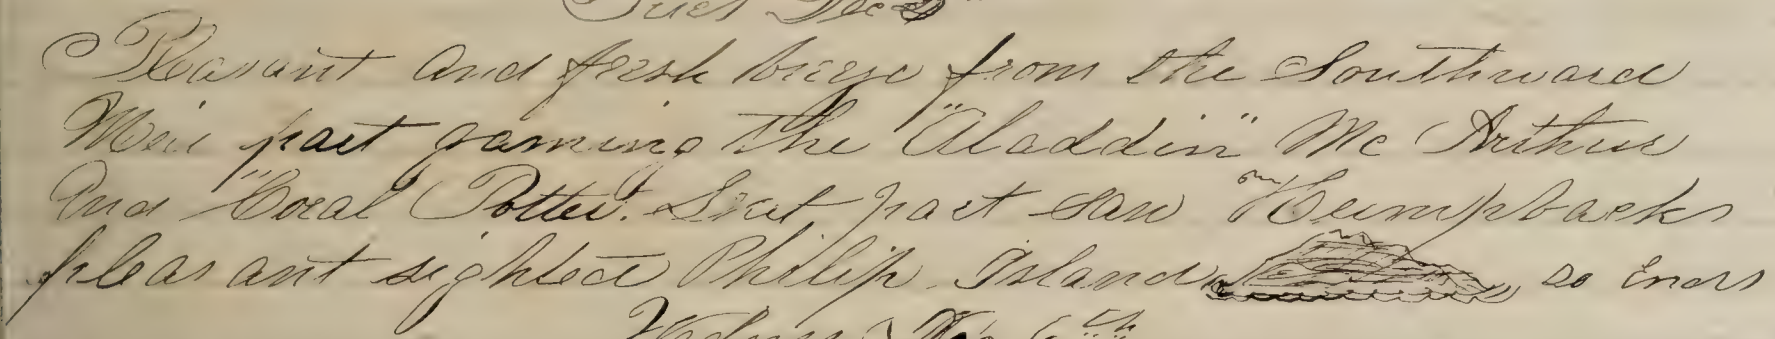 Tues Dec 5"
Pleasant and fresh breeze from the Southward
Mid part gaming the "Aladdin" Mc Arthur
And "Coral Potter". Last part saw Humpbacks
pleasant sighted Philip Island so Ends
Wednes Dec 6th